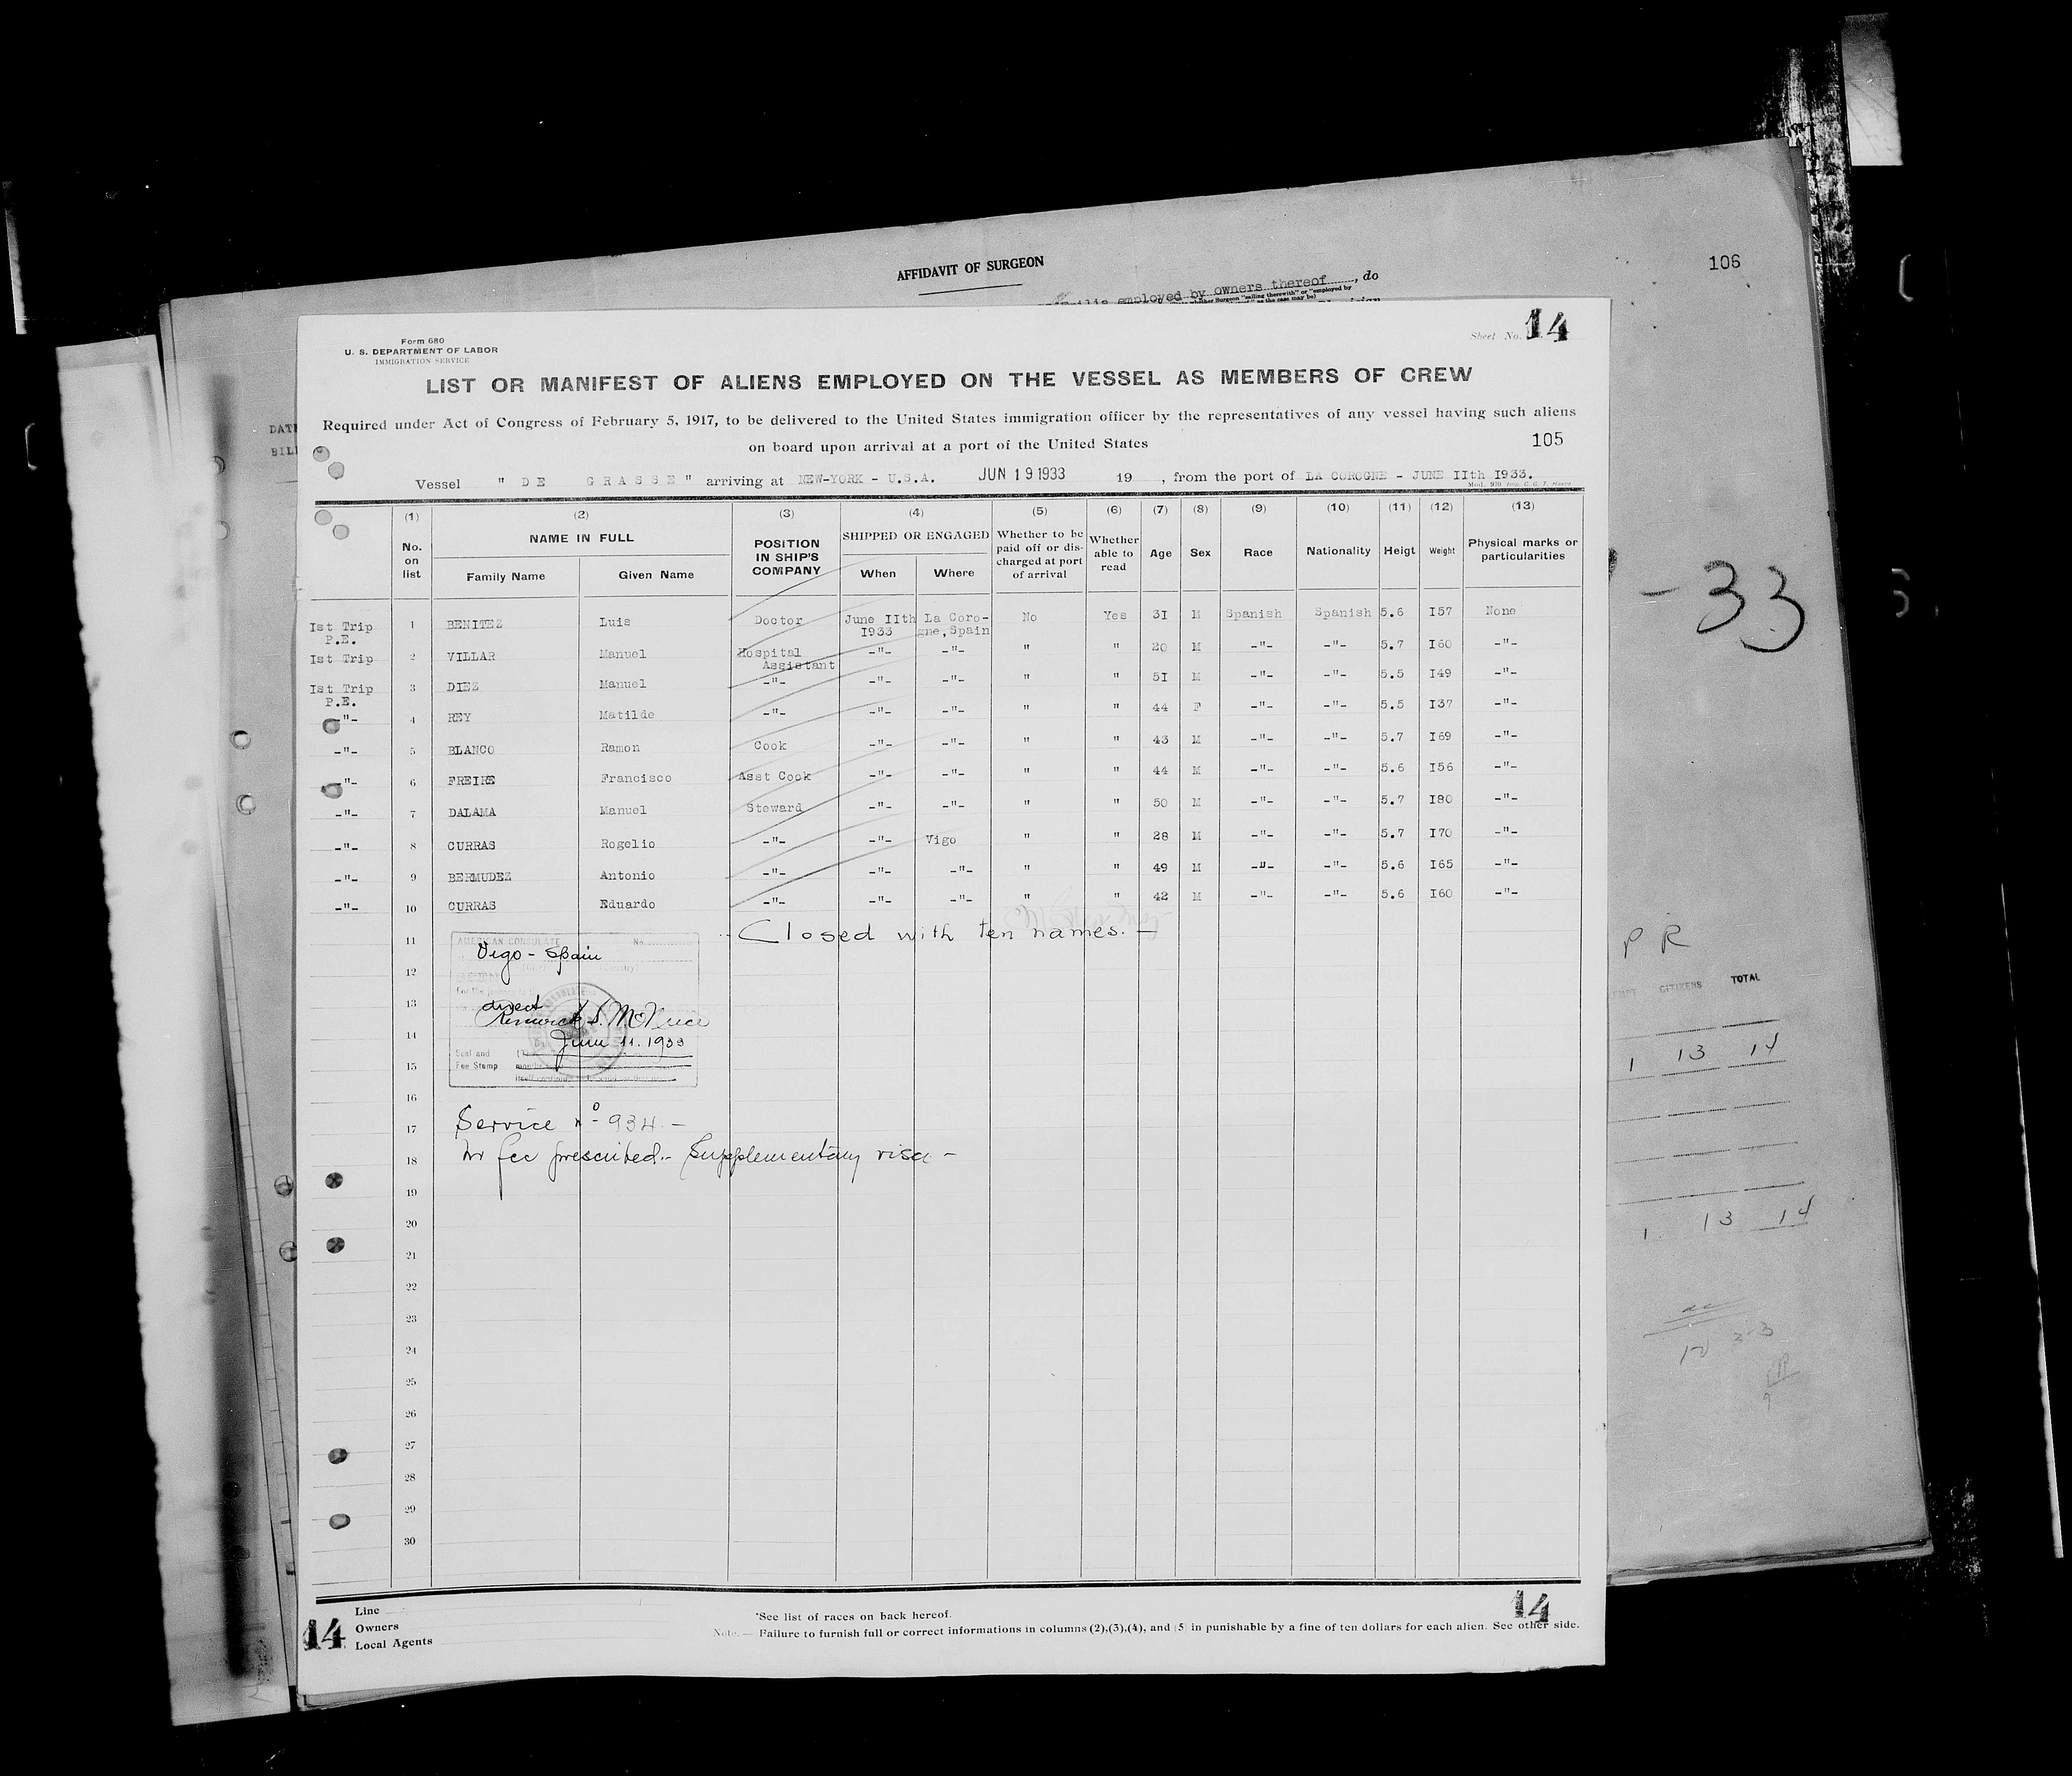 AFFIDAVIT OF SURGEON
106
employed by owners thereof, do
Form 680
U. S. DEPARTMENT OF LABOR
IMMIGRATION SERVICE
Sheet No. 14
LIST OR MANIFEST OF ALIENS EMPLOYED ON THE VESSEL AS MEMBERS OF CREW
Required under Act of Congress of February 5, 1917, to be delivered to the United States immigration officer by the representatives of any vessel having such aliens
on board upon arrival at a port of the United States
105
Vessel " DE GRASSE " arriving at NEW-YORK - U.S.A. JUN 19 1933 19 , from the port of LA COROGNE - JUNE IIth I933.
(1) (2) (3) (4) (5) (6) (7) (8) (9) (10) (11) (12) (13)
No. on list NAME IN FULL Family Name Given Name POSITION IN SHIP'S COMPANY SHIPPED OR ENGAGED When Where Whether to be paid off or discharged at port of arrival Whether able to read Age Sex Race Nationality Heigt Weight Physical marks or particularities
Ist Trip P.E. 1 BENITEZ Luis Doctor June IIth I933 La Coro-gne, Spain No Yes 3I M Spanish Spanish 5.6 I57 None
Ist Trip 2 VILLAR Manuel Hospital Assistant -"- -"- " " 20 M -"- -"- 5.7 I60 -"-
Ist Trip P.E. 3 DIEZ Manuel -"- -"- -"- " " 5I M -"- -"- 5.5 I49 -"-
-"- 4 REY Matilde -"- -"- -"- " " 44 F -"- -"- 5.5 I37 -"-
-"- 5 BLANCO Ramon Cook -"- -"- " " 43 M -"- -"- 5.7 I69 -"-
-"- 6 FREIRE Francisco Asst Cook -"- -"- " " 44 M -"- -"- 5.6 I56 -"-
-"- 7 DALAMA Manuel Steward -"- -"- " " 50 M -"- -"- 5.7 I80 -"-
-"- 8 CURRAS Rogelio -"- -"- Vigo " " 28 M -"- -"- 5.7 I70 -"-
-"- 9 BERMUDEZ Antonio -"- -"- -"- " " 49 M -"- -"- 5.6 I65 -"-
-"- 10 CURRAS Eduardo -"- -"- -"- " " 42 M -"- -"- 5.6 I60 -"-
11 Closed with ten names. —
AMERICAN CONSULATE No.
Vigo - Spain
12
13 direct
Renwick S. McNiece
14 June 11. 1933
Seal and
15 Fee Stamp
16
17 Service nº 934. —
18 No fee prescribed.- Supplementary visa -
19
20
21
22
23
24
25
26
27
28
29
30
Line
Owners
Local Agents
14
*See list of races on back hereof.
Note. — Failure to furnish full or correct informations in columns (2),(3),(4), and (5) in punishable by a fine of ten dollars for each alien. See other side.
14
- 33
P R
CITIZENS TOTAL
1 13 14
1 13 14